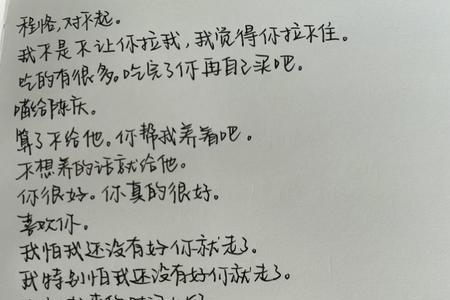 程恪，对不起。
我不是不让你拉我，我觉得你拉不住。
吃的有很多。吃完了你再自己买吧。
喵给陈庆。
算了不给他。你帮我养着吧。
不想养的话就给他。
你很好。你真的很好。
喜欢你。
我怕我还没有好你就走了。
我特别怕我还没有好你就走了。